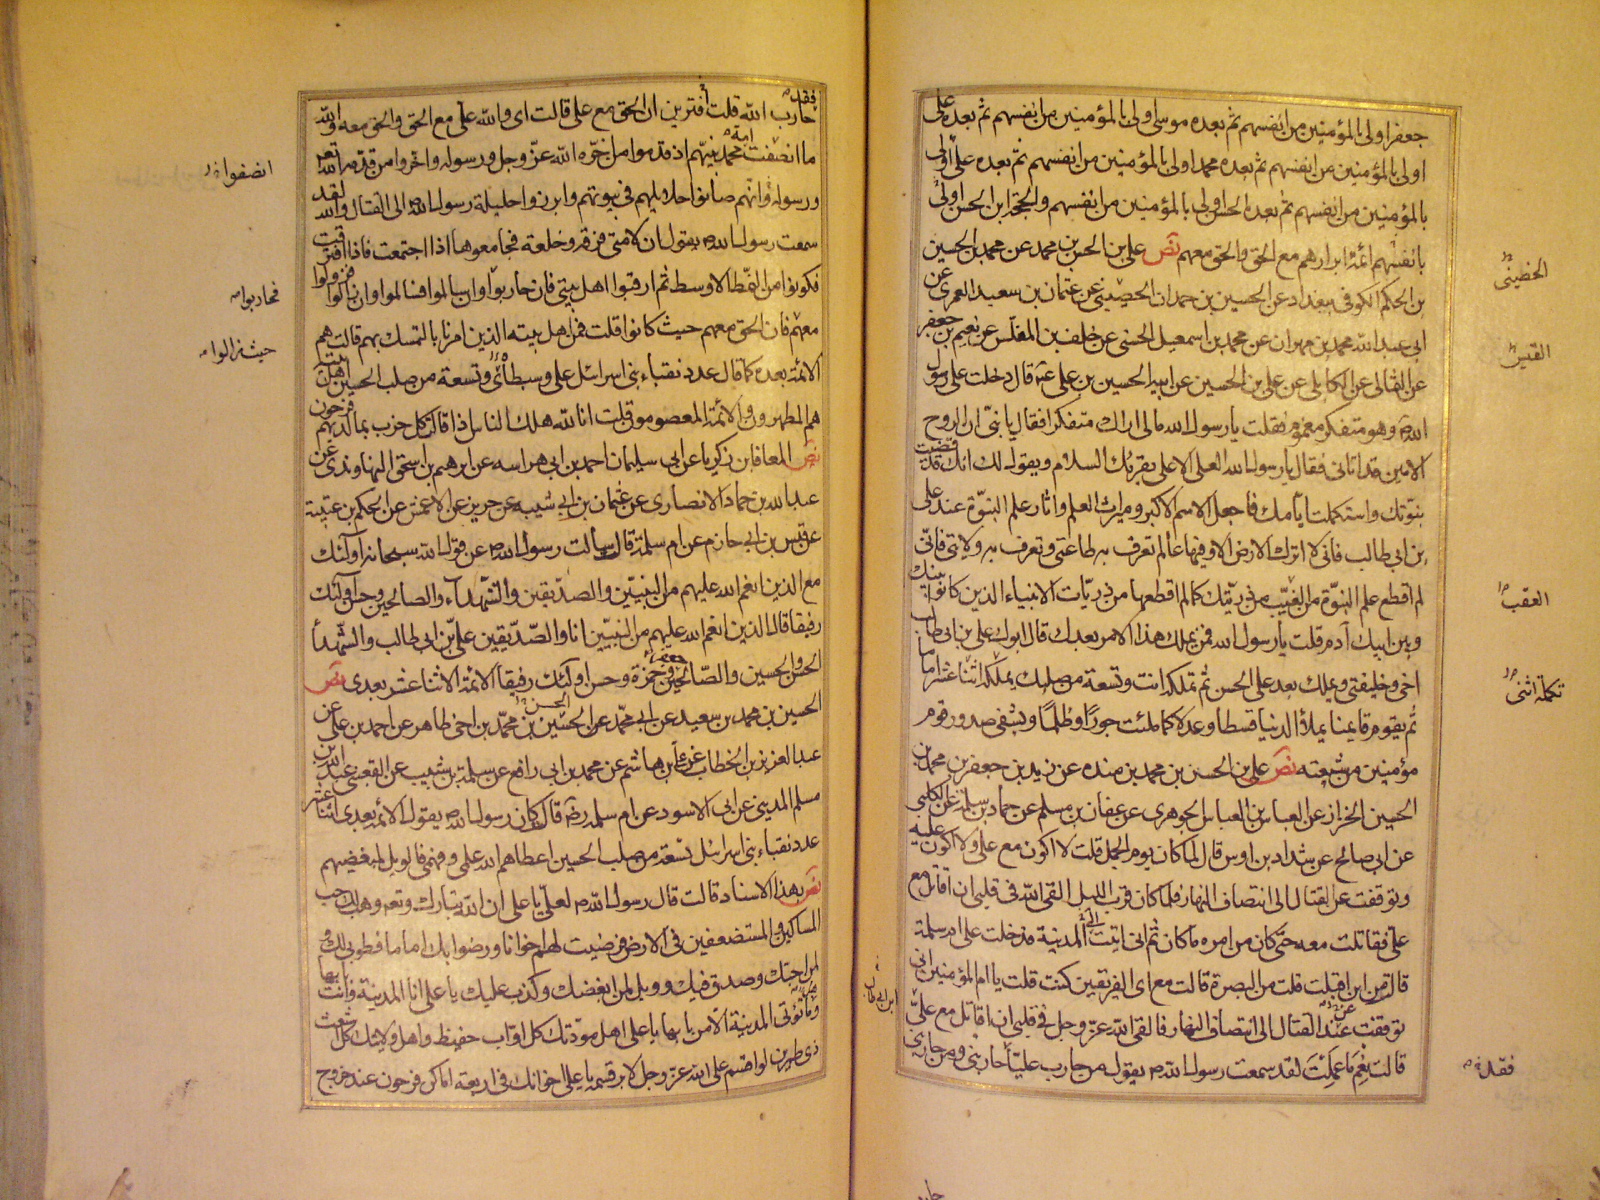 جعفر اولى بالمؤمنين من انفسهم ثم بعده موسى اولى بالمؤمنين من انفسهم ثم بعده على
اولى بالمؤمنين من انفسهم ثم بعده محمد اولى بالمؤمنين من انفسهم ثم بعده على اولى
بالمؤمنين من انفسهم ثم بعده الحسن اولى بالمؤمنين من انفسهم والحجة ابن الحسن اولى
بانفسهم ائمة ابرارهم مع الحق والحق معهم نص على بن الحسن بن محمد عن محمد بن الحسين
بن الحكم الكوفى ببغداد عن الحسين بن حمدان الحصينى عن عثمان بن سعيد العمرى عن
ابى عبد الله محمد بن مهران عن محمد بن اسمعيل الحسنى عن خلف بن المفلس عن نعيم بن جعفر
عن الثمالى عن الكابلى عن على بن الحسين عن ابيه الحسين بن على عـ قال دخلت على رسول
الله وهو متفكر مغموم فقلت يا رسول الله مالى اراك متفكرا فقال يا بنى ان الروح
الامين قد اتانى فقال يا رسول الله العلى الاعلى يقرئك السلام ويقول لك انك قد قضيت
بنوتك واستكملت ايامك فاجعل الاسم الاكبر وميراث العلم واثار علم النبوة عند على
بن ابى طالب فانى لا اترك الارض الا وفيها عالم تعرف به طاعتى وتعرف به ولايتى فانى
لم اقطع علم النبوة من الغيب من ذريتك كما لم اقطعها من ذريات الانبياء الذين كانوا بينك
وبين ابيك آدم قلت يا رسول الله فمن يملك هذا الامر بعدك قال ابوك على بن ابى طالب
اخى وخليفتى ويملك بعد على الحسن ثم تملكه انت وتسعة من صلبك يملكه اثنا عشر اماما
ثم يقوم قايمنا يملأ الدنيا قسطا وعدلا كما ملئت جورًا وظلمًا ويشفى صدور قوم
مؤمنين من شيعته نص على بن الحسن بن محمد بن منده عن زيد بن جعفر بن محمد بن
الحسين الخزاز عن العباس بن العباس الجوهرى عن عفان بن مسلم عن حماد بن سلمة عن الكلبى
عن ابى صالح عن شداد بن اوس قال لما كان يوم الجمل قلت لا اكون مع على ولا اكون عليه
وتوقفت عن القتال الى انتصاف النهار فلما كان قرب الليل القى الله فى قلبى ان اقاتل مع
على فقاتلت معه حتى كان من امره ما كان ثم انى اتيت الى المدينة فدخلت على ام سلمة
قالت من اين اقبلت قلت من البصرة قالت مع اى الفريقين كنت قلت يا ام المؤمنين انى
توقفت عند القتال الى انتصاف النهار فالقى الله عز وجل فى قلبى ان اقاتل مع على
قالت نعم ما عملت لقد سمعت رسول الله يقول من حارب عليا حاربنى ومن حاربنى
الحضينى
القبر
العقب
تكملة اثنى
فقد
حارب الله قلت أفترين ان الحق مع على قالت اى والله على مع الحق والحق معه والله
ما انصفت امة محمد نبيهم اذ قدموا من اخره الله عز وجل ورسوله واخروا من قدمه الله تعه
ورسوله وانهم صانوا حلايلهم فى بيوتهم وابرزوا حليلة رسول الله الى القتال والله لقد
سمعت رسول الله يقول ان لامتى فرقة وخلعة فجامعوها اذا اجتمعت فاذا افترقت
فكونوا من النمط الاوسط ثم ارقبوا اهل بيتى فان حاربوا وان سالموا فسالموا وان زالوا فزولوا
معهم فان الحق معهم حيث كانوا قلت فمن اهل بيته الذين امرنا بالتمسك بهم قالت هم
الائمة بعده كما قال عدد نقباء بنى اسرائيل على وسبطاى وتسعة من صلب الحسين اهل بيته
هم المطهرون والائمة المعصومون قلت انا لله هلك الناس اذا قالت كل حزب بما لديهم فرحون
نص المعافا بن زكريا عن ابى سليمان احمد بن ابى هراسه عن ابرهيم بن اسحق النهاوندى عن
عبد الله بن حماد الانصارى عن عثمان بن ابى شيبه عن جرير عن الاعمش عن الحكم بن عتيبة
عن قيس بن ابى حازم عن ام سلمة قال سألت رسول الله عن قول الله سبحانه اولئك
مع الذين انعم الله عليهم من النبيين والصديقين والشهداء والصالحين وحسن اولئك
رفيقا قال الذين انعم الله عليهم من النبيين انا والصديقين على بن ابى طالب والشهدآ
الحسن والحسين والصالحين حمزة وحسن اولئك رفيقا الائمة الاثنا عشر بعدى نص
الحسين بن محمد بن سعيد عن ابى محمد عن الحسين بن محمد بن اخى طاهر عن احمد بن على عن
عبد العزيز بن الخطاب عن على بن هاشم عن محمد بن ابى رافع عن سلمة بن شبيب عن القعنبى عبد الله بن
مسلم المدينى عن ابى الاسود عن ام سلمه رضه قال كان رسول الله يقول الائمه بعدى اثنا عشر
عدد نقباء بنى اسرائيل تسعة من صلب الحسين اعطاهم الله علمى وفهمى فالويل لمبغضيهم
نص بهذا الاسناد قالت قال رسول الله لعلى يا على ان الله تبارك وتعه وهب لك حب
المساكين والمستضعفين فى الارض فرضيت لهم اخوانا ورضوا بك اماما فطوبى لك و
لمن احبك وصدق فيك وويل لمن ابغضك وكذب عليك يا على انا المدينة وانت بابها
وما تؤتى المدينة الا من بابها يا على اهل مودتك كل اواب حفيظ واهل ولايتك كل اشعث
ذى طمرين لو اقسم على الله عز وجل لابر قسمه يا على اخوانك فى اربعة اماكن فرحون عند خروج
انصفوا
فحاربوا
حيث زالوا